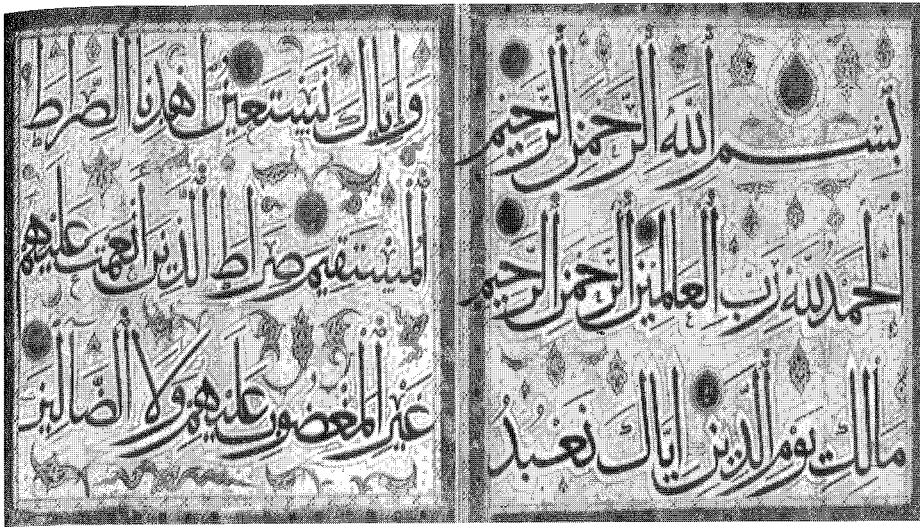 بِسْمِ اللَّهِ الرَّحْمَٰنِ الرَّحِيمِ
الْحَمْدُ لِلَّهِ رَبِّ الْعَالَمِينَ الرَّحْمَٰنِ الرَّحِيمِ
مَالِكِ يَوْمِ الدِّينِ إِيَّاكَ نَعْبُدُ
وَإِيَّاكَ نَسْتَعِينُ اهْدِنَا الصِّرَاطَ
الْمُسْتَقِيمَ صِرَاطَ الَّذِينَ أَنْعَمْتَ عَلَيْهِمْ
غَيْرِ الْمَغْضُوبِ عَلَيْهِمْ وَلَا الضَّالِّينَ